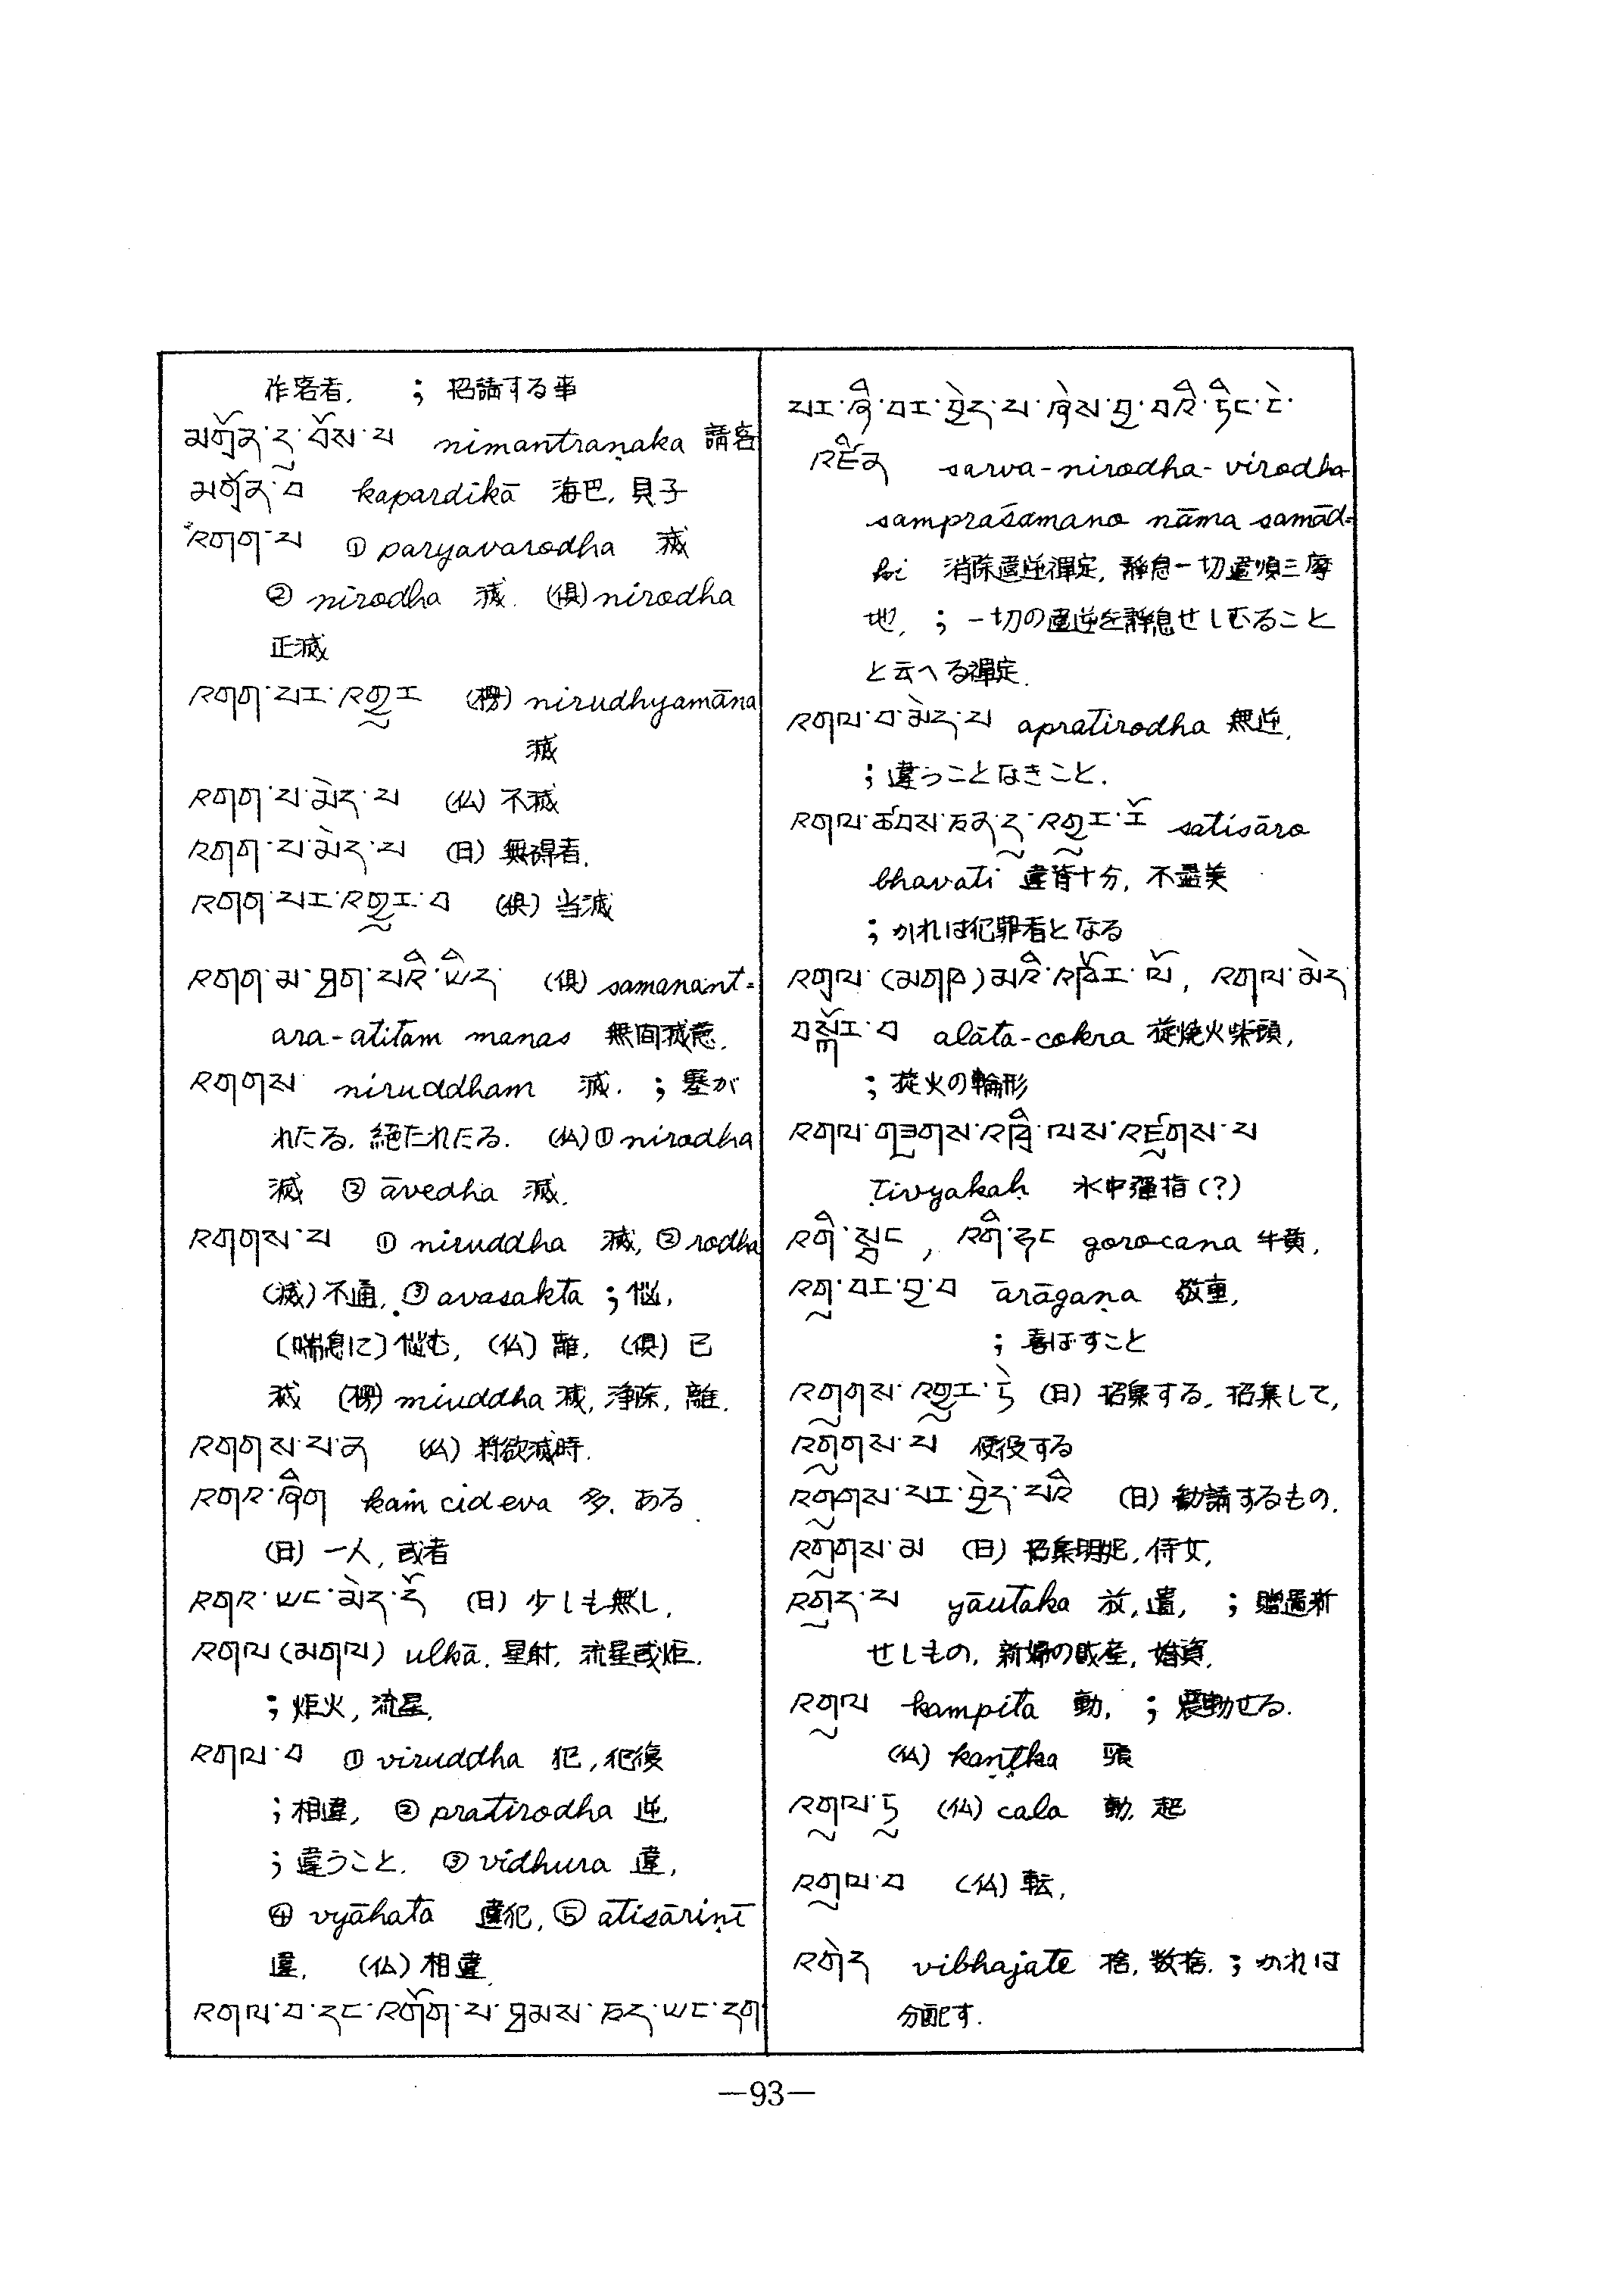 作客者. ; 招請する事
མགྲོན་དུ་བོས་པ nimantraṇaka 請客
མགྲོན་བུ kapardikā 海巴, 貝子
འགག་པ ① paryavarodha 滅
② nirodha 滅. (倶) nirodha
正滅
འགག་པར་འགྱུར (楞) nirudhyamāna
滅
འགག་པ་མེད་པ (仏) 不滅
འགག་པ་མེད་པ (日) 無碍者.
འགག་པར་འགྱུར་བ (倶) 当滅
འགག་མ་ཐག་པའི་ཡིད (倶) samanant-
ara-atitam manas 無間滅意.
འགགས niruddham 滅. ; 塞が
れたる. 絕たれたる. (仏) ① nirodha
滅 ② āvedha 滅.
འགགས་པ ① niruddha 滅, ② rodha
(滅) 不通, ③ avasakta ; 悩,
〔喘息に〕悩む, (仏) 離, (倶) 已
滅 (楞) miuddha 滅, 浄除, 離.
འགགས་པ་ན (仏) 将欲滅時.
འགའ་ཞིག kaṁ cid eva 多, ある
(日) 一人, 或者
འགའ་ཡང་མེད་དོ (日) 少しも無し,
འགལ (མགལ) ulkā. 星射, 流星或炬.
; 炬火, 流星.
འགལ་བ ① viruddha 犯, 犯復
; 相違, ② pratirodha 逆
; 違うこと. ③ vidhura 違,
④ vyāhata 違犯, ⑤ atisāriṇī
違, (仏) 相違
འགལ་བ་དང་འགོག་པ་ཐམས་ཅད་ཡང་དག
པར་ཞི་བར་བྱེད་པ་ཞེས་བྱ་བའི་ཏིང་ངེ་
འཛིན sarva-nirodha-virodha-
sampraśamano nāma samād-
hi 消除違逆禅定, 静息一切違順三摩
地, ; 一切の違逆を静息せしむること
と云へる禅定.
འགལ་བ་མེད་པ apratirodha 無逆,
; 違うことなきこと.
འགལ་ཚབས་ཅན་དུ་འགྱུར་རོ satisāro
bhavati 違背十分, 不盡美
; かれは犯罪者となる
འགལ (མགལ) མའི་འཁོར་ལོ, འགལ་མེད
བསྐོར་བ alāta-cakra 旋焼火柴頭,
; 旋火の輪形
འགལ་གཟུགས་འཁྲི་ལས་འཛུགས་པ
ṭivyakaḥ 水中彈指 (?)
འགི་སྦང, འགི་ཧང gorocana 牛黄,
འགུ་བར་བྱ་བ ārāgaṇa 敬重,
; 喜ばすこと
འགུགས་འགྱུར་ཏེ (日) 招集する, 招集して,
འགུགས་པ 使役する
འགུགས་པར་བྱེད་པའི (日) 勧請するもの.
འགུགས་མ (日) 招集明妃, 侍女,
འགུད་པ yāutaka 放, 遺, ; 贈
せしもの, 新婦の財産, 婚資.
འགུལ kampita 動, ; 震動せる.
(仏) kanṭka 頸
འགུལ་ཏུ (仏) cala 動, 起
འགུལ་བ (仏) 転,
འགེད vibhajate 捨, 数捨. ; かれは
分配す.
—93—